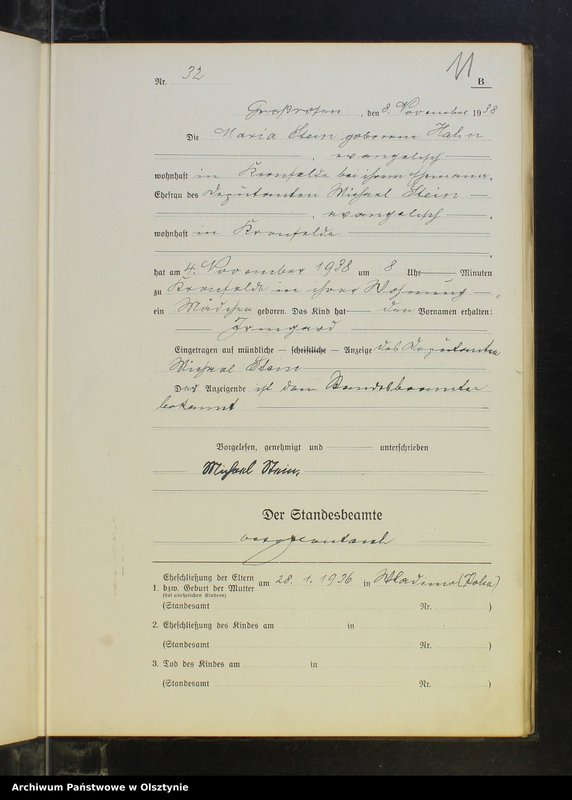 Nr. 32
11
B
Großrosen, den 8. November 1938
Die Maria Stein geborene Hahn
, evangelisch
wohnhaft in Kronfelde bei ihrem Ehemann,
Ehefrau des Deputanten Michael Stein
, evangelisch,
wohnhaft in Kronfelde
,
hat am 4. November 1938 um 8 Uhr Minuten
zu Kronfelde in ihrer Wohnung,
ein Mädchen geboren. Das Kind hat den Vornamen erhalten:
Irmgard
Eingetragen auf mündliche – schriftliche – Anzeige des Deputanten
Michael Stein
Der Anzeigende ist dem Standesbeamten
bekannt
Vorgelesen, genehmigt und unterschrieben
Michael Stein.
Der Standesbeamte
1. Eheschließung der Eltern
bzw. Geburt der Mutter
(bei unehelichen Kindern)
am 28. 1. 1936 in (Polen)
(Standesamt Nr. )
2. Eheschließung des Kindes am in
(Standesamt Nr. )
3. Tod des Kindes am in
(Standesamt Nr. )
Archiwum Państwowe w Olsztynie